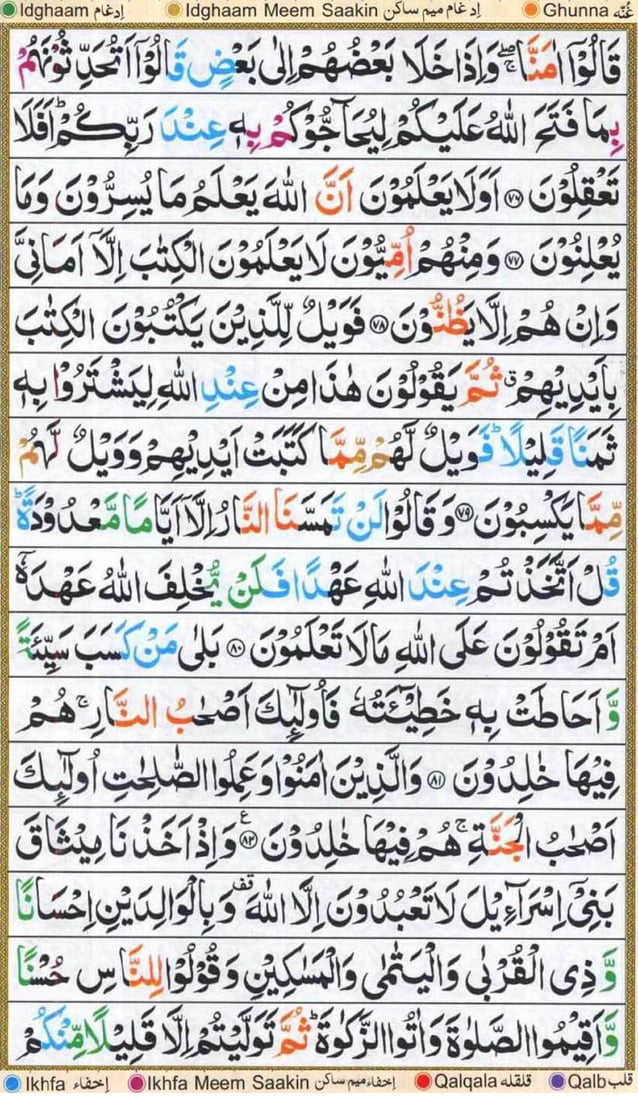 Idghaam ادغام Idghaam Meem Saakin ادغام میم ساکن Ghunna غنّه
قَالُوْۤا اٰمَنَّا ۖۚ وَاِذَا خَلَا بَعْضُهُمْ اِلٰى بَعْضٍ قَالُوْۤا اَتُحَدِّثُوْنَهُمْ
بِمَا فَتَحَ اللّٰهُ عَلَيْكُمْ لِيُحَآجُّوْكُمْ بِهٖ عِنْدَ رَبِّكُمْ ؕ اَفَلَا
تَعْقِلُوْنَ ۷۶ اَوَلَا يَعْلَمُوْنَ اَنَّ اللّٰهَ يَعْلَمُ مَا يُسِرُّوْنَ وَمَا
يُعْلِنُوْنَ ۷۷ وَمِنْهُمْ اُمِّيُّوْنَ لَا يَعْلَمُوْنَ الْكِتٰبَ اِلَّاۤ اَمَانِىَّ
وَاِنْ هُمْ اِلَّا يَظُنُّوْنَ ۷۸ فَوَيْلٌ لِّلَّذِيْنَ يَكْتُبُوْنَ الْكِتٰبَ
بِاَيْدِيْهِمْ ۗ ثُمَّ يَقُوْلُوْنَ هٰذَا مِنْ عِنْدِ اللّٰهِ لِيَشْتَرُوْا بِهٖ
ثَمَنًا قَلِيْلًا ؕ فَوَيْلٌ لَّهُمْ مِّمَّا كَتَبَتْ اَيْدِيْهِمْ وَوَيْلٌ لَّهُمْ
مِّمَّا يَكْسِبُوْنَ ۷۹ وَقَالُوْا لَنْ تَمَسَّنَا النَّارُ اِلَّاۤ اَيَّامًا مَّعْدُوْدَةً ؕ
قُلْ اَتَّخَذْتُمْ عِنْدَ اللّٰهِ عَهْدًا فَلَنْ يُّخْلِفَ اللّٰهُ عَهْدَهٗۤ
اَمْ تَقُوْلُوْنَ عَلَى اللّٰهِ مَا لَا تَعْلَمُوْنَ ۸۰ بَلٰى مَنْ كَسَبَ سَيِّئَةً
وَّاَحَاطَتْ بِهٖ خَطِيْٓئَتُهٗ فَاُولٰٓئِكَ اَصْحٰبُ النَّارِ ۚ هُمْ
فِيْهَا خٰلِدُوْنَ ۸۱ وَالَّذِيْنَ اٰمَنُوْا وَعَمِلُوا الصّٰلِحٰتِ اُولٰٓئِكَ
اَصْحٰبُ الْجَنَّةِ ۚ هُمْ فِيْهَا خٰلِدُوْنَ ۸۲ ع وَاِذْ اَخَذْنَا مِيْثَاقَ
بَنِىْۤ اِسْرَآءِيْلَ لَا تَعْبُدُوْنَ اِلَّا اللّٰهَ قف وَبِالْوَالِدَيْنِ اِحْسَانًا
وَّذِى الْقُرْبٰى وَالْيَتٰمٰى وَالْمَسٰكِيْنِ وَقُوْلُوْا لِلنَّاسِ حُسْنًا
وَّاَقِيْمُوا الصَّلٰوةَ وَاٰتُوا الزَّكٰوةَ ؕ ثُمَّ تَوَلَّيْتُمْ اِلَّا قَلِيْلًا مِّنْكُمْ
Ikhfa إخفاء Ikhfa Meem Saakin إخفاء میم ساکن Qalqala قلقله Qalb قلب